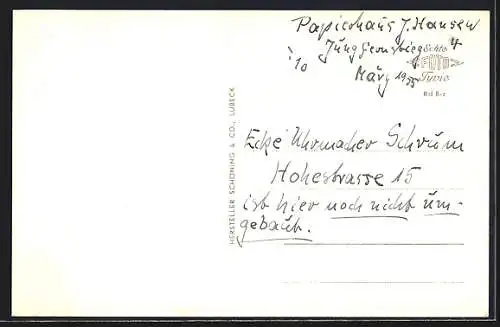 Papierhaus J. Hansen
Jungfernstieg 4
: 10
März 1955
Echte
FOTO
Typie
HERSTELLER SCHÖNING & CO., LÜBECK
Ecke Uhrmacher Schrum
Hohestrasse 15
ist hier noch nicht um-
gebaut.